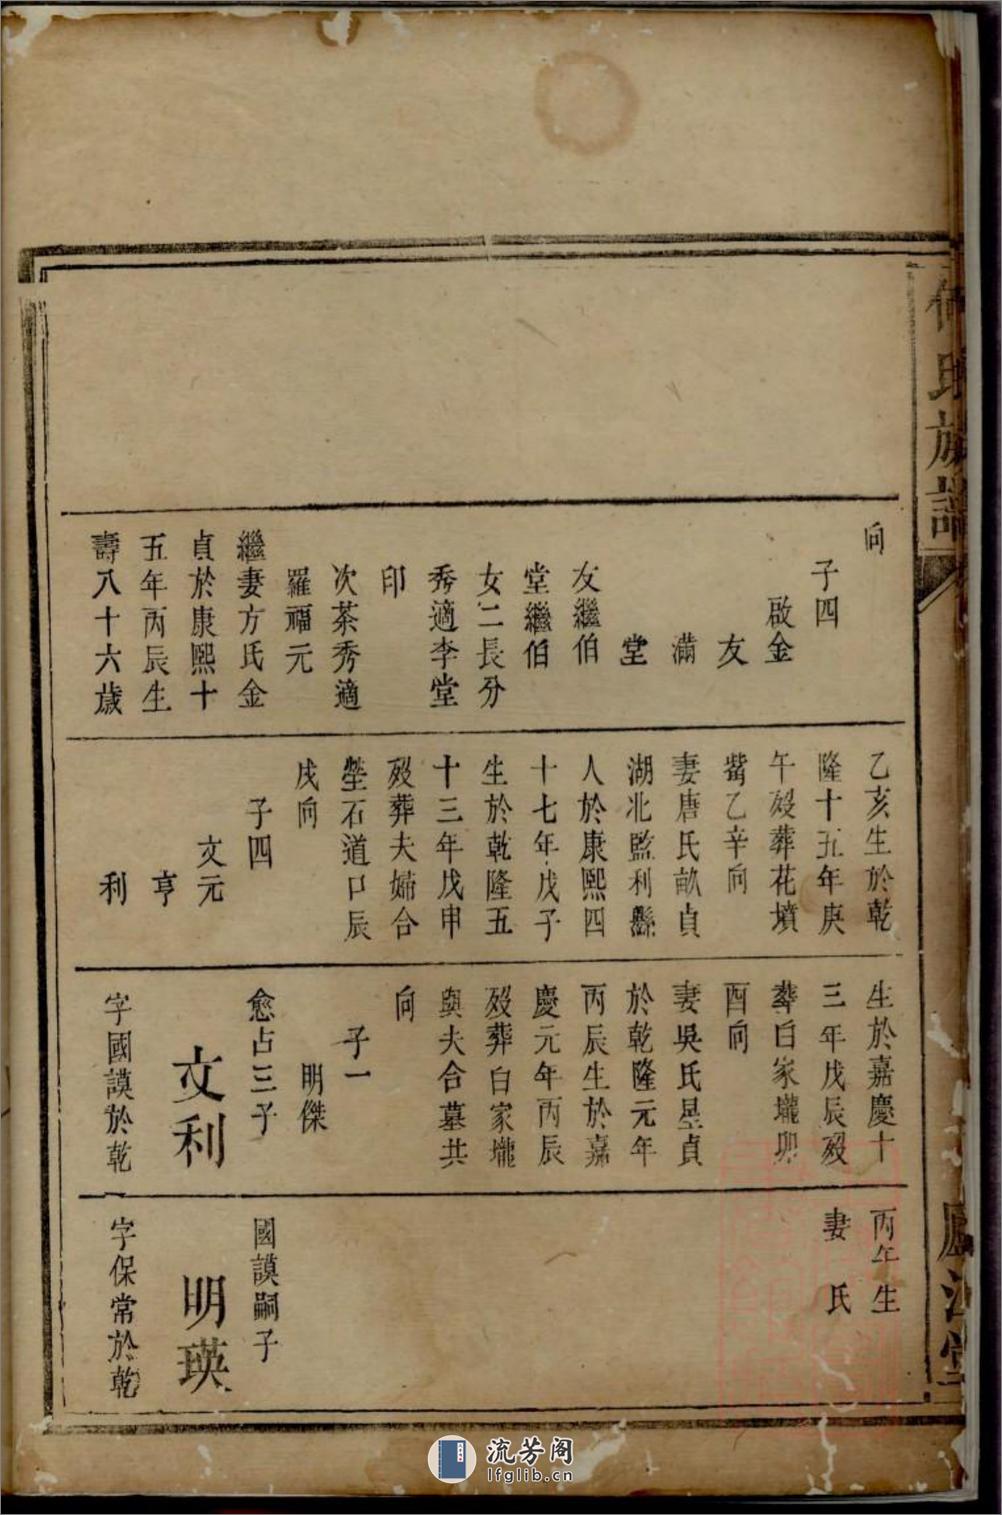 何氏族譜
廬江堂
向
子四
啟金
友
滿
堂
友繼伯
堂繼伯
女二長分
秀適李堂
印
次茶秀適
羅福元
繼妻方氏金
貞於康熙十
五年丙辰生
壽八十六歲
乙亥生於乾
隆十五年庚
午歿葬花墳
嘴乙辛向
妻唐氏畝貞
湖北監利縣
人於康熙四
十七年戊子
生於乾隆五
十三年戊申
歿葬夫婦合
塋石道口辰
戌向
子四
文元
亨
利
生於嘉慶十
三年戊辰歿
葬白家壠卯
酉向
妻吳氏星貞
於乾隆元年
丙辰生於嘉
慶元年丙辰
歿葬白家壠
與夫合墓共
向
子一
明傑
愈占三子
文利
字國謨於乾
丙午生
妻氏
國謨嗣子
明瑛
字保常於乾
流芳阁
lfglib.cn